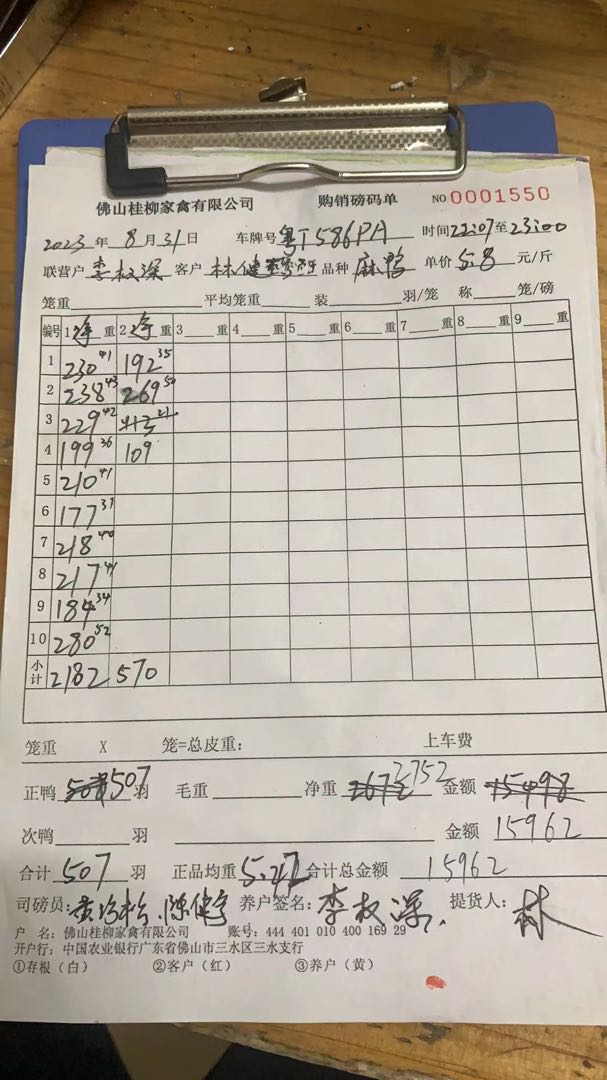 佛山桂柳家禽有限公司 购销磅码单 NO 0001550
2023年8月31日 车牌号 粤T586PA 时间22:07至23:00
联营户 李权深 客户 林健 品种 麻鸭 单价 5.8 元/斤
笼重 平均笼重 装 羽/笼 称 笼/磅
编号 1净重 2净重 3 重 4 重 5 重 6 重 7 重 8 重 9 重
1 230 41 192 35
2 238 43 269 50
3 229 42
4 199 36 109
5 210 41
6 177 31
7 218 40
8 217 41
9 184 34
10 280 52
小计 2182 570
笼重 X 笼=总皮重: 上车费
正鸭 507 羽 毛重 净重 2672 2752 金额 15498
次鸭 羽 金额 15962
合计 507 羽 正品均重 5.42 合计总金额 15962
司磅员: 陈健 养户签名: 李权深 提货人: 林
户 名: 佛山桂柳家禽有限公司 账号: 444 401 010 400 169 29
开户行: 中国农业银行广东省佛山市三水区三水支行
①存根(白) ②客户(红) ③养户(黄)